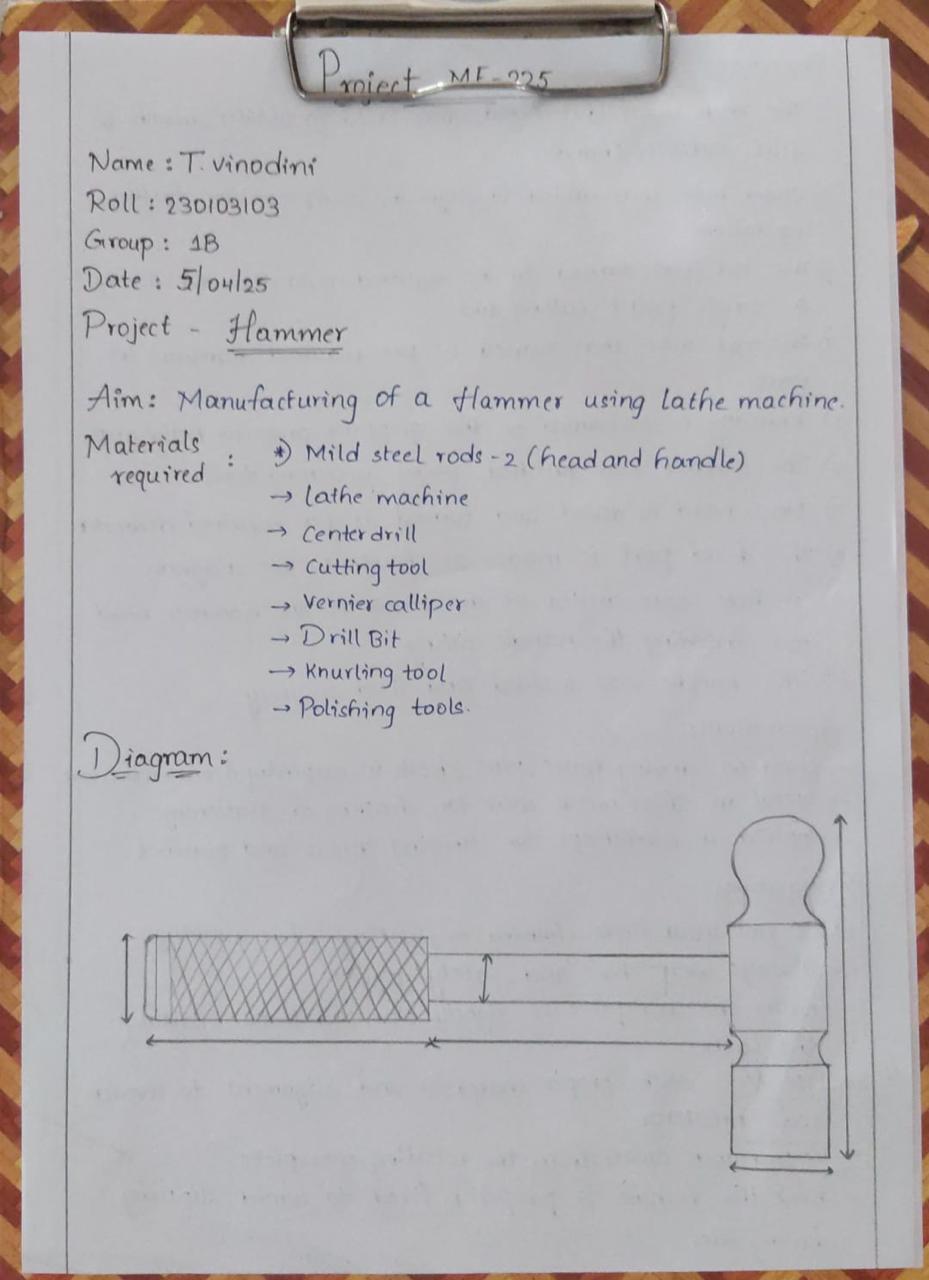 Project ME-225
Name : T. vinodini
Roll : 230103103
Group : 1B
Date : 5/04/25
Project - Hammer
Aim: Manufacturing of a Hammer using lathe machine.
Materials required : *) Mild steel rods - 2 (head and handle)
→ lathe machine
→ Center drill
→ Cutting tool
→ Vernier calliper
→ Drill Bit
→ Knurling tool
→ Polishing tools.
Diagram :